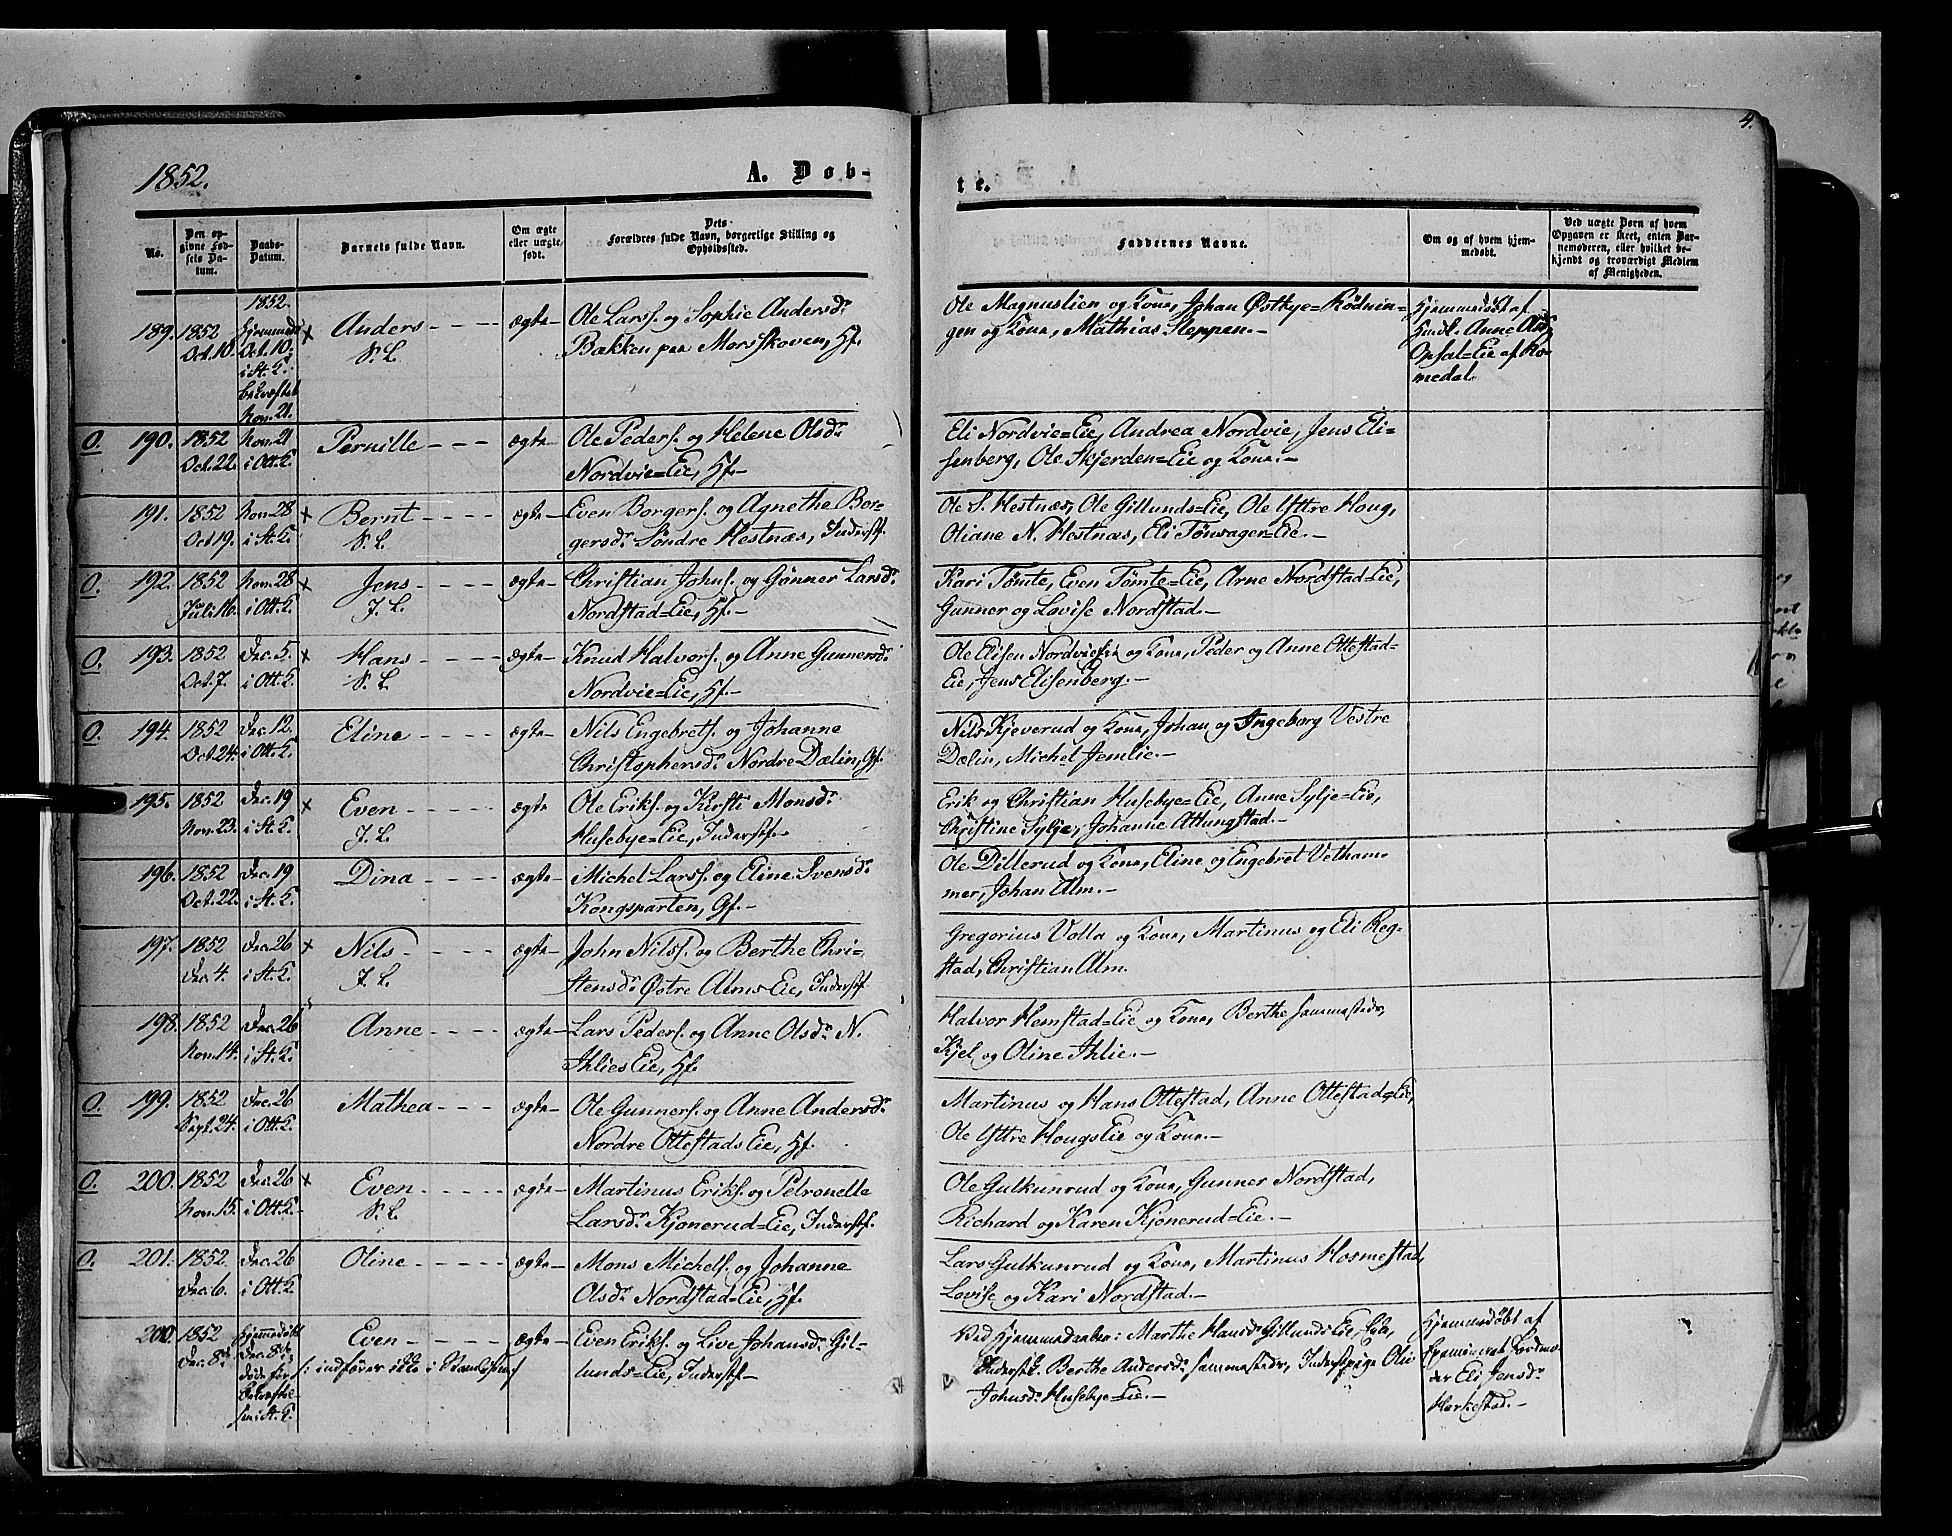 4.
1852.
A. Døb-
te.
No.
Den op-
givne Fød-
sels Da-
tum.
Daabs-
Datum.
Barnets fulde Navn.
Om ægte
eller uægte
født.
Dets
Forældres fulde Navn, borgerlige Stilling og
Opholdssted.
Faddernes Navne.
Om og af hvem hjem-
medøbt.
Ved uægte Børn af hvem
Opgaven er skeet, enten Bar-
nemoderen, eller hvilket be-
kjendt og troværdigt Medlem
af Menigheden.
189. 1852 Oct. 10.
1852.
Hjemmedt
Oct. 10.
i St. K.
bekræftet
Nov. 21.
× Anders
S. L.
ægte
Ole Larss. og Sophie Andersd.
Bakken paa Morsskoven, Hf.
Ole Magnuslien og Kone, Johan Østbye-Rødnin-
gen og Kone, Mathias Sleppen.
Hjemmedøbt af
Anne
Opsal=Eie af Ro-
medal.
O. 190. 1852 Oct. 22.
Nov. 21
i Ott. K.
Pernille
ægte
Ole Peders. og Helene Olsd.
Nordvie=Eie, Hf.
Eli Nordvie=Eie, Andrea Nordvie, Jens Eli-
senberg, Ole Skjerden=Eie og Kone.
191. 1852 Oct 19.
Nov. 28
i St. K.
× Bernt
S. L.
ægte
Even Borgers. og Agnethe Bor-
gersd. Søndre Hestnæs, Inderstf.
Ole S. Hestnæs, Ole Gillunds=Eie, Ole Yttre Houg,
Oliane N. Hestnæs, Eli Tønsager=Eie.
O. 192. 1852 Juli 16.
Nov. 28
i Ott. K.
× Jens
J. L.
ægte
Christian Johns. og Gønner Larsd.
Nordstad=Eie, Hf.
Kari Tømte, Even Tømte=Eie, Arne Nordstad=Eie,
Gunner og Lovise Nordstad.
O. 193. 1852 Oct. 7.
Dec. 5.
i Ott. K.
× Hans
S. L.
ægte
Knud Halvors. og Anne Gunnersd.
Nordvie=Eie, Hf.
Ole Elisen Nordvieeie og Kone, Peder og Anne Ottestad=
Eie, Jens Elisenberg.
O. 194. 1852 Oct. 24.
Dec. 12.
i Ott. K.
Eline
ægte
Nils Engebrets. og Johanne
Christophersd. Nordre Dælin, Gf.
Nils Kjeverud og Kone, Johan og Ingeborg Vestre
Dælin, Michel Jemlie.
195. 1852 Nov. 23.
Dec. 19
i St. K.
× Even
J. L.
ægte
Ole Eriks. og Kirsti Monsd.
Husebye=Eie, Inderstf.
Erik og Christian Husebye=Eie, Anne Sylje=Eie,
Christine Sylje, Johanne Attungstad.
196. 1852 Oct. 22.
Dec. 19
i St. K.
Dina
ægte
Michel Larss. og Eline Svensd.
Kongsparten, Gf.
Ole Dillerud og Kone, Eline og Engebret Vetham-
mer, Johan Alm.
197. 1852 Dec. 4.
Dec. 26
i St. K.
× Nils
J. L.
ægte
John Nilss. og Berthe Chri-
stensd. Østre Alms Eie, Inderstf.
Gregorius Volla og Kone, Martinus og Eli Reg-
stad, Christian Alm.
198. 1852 Nov. 14.
Dec. 26
i St. K.
Anne
ægte
Lars Peders. og Anne Olsd. N.
Ihlies Eie, Hf.
Halvor Hemstad=Eie og Kone, Berthe sammesteder,
Kjel og Oline Ihlie.
O. 199. 1852 Sept. 24.
Dec. 26
i Ott. K.
Mathea
ægte
Ole Gunners. og Anne Andersd.
Nordre Ottestads Eie, Hf.
Martinus og Hans Ottestad, Anne Ottestad=Eie,
Ole Yttre Hougs Eie og Kone.
O. 200. 1852 Nov. 15.
Dec. 26
i Ott. K.
× Even
S. L.
ægte
Martinus Eriks. og Petronelle
Larsd. Kjonerud=Eie, Inderstf.
Ole Gulkunrud og Kone, Gunner Nordstad,
Richard og Karen Kjonerud=Eie.
O. 201. 1852 Dec. 6.
Dec. 26
i Ott. K.
Oline
ægte
Mons Michels. og Johanne
Olsd. Nordstad=Eie, Hf.
Lars Gulkunrud og Kone, Martinus Hosmestad,
Lovise og Kari Nordstad.
1852 Dec. 8de
Hjemmedøbt
Dec. 8de,
døde før
Bekræftel
sen i St. K.
Even
/: indføres ikke i
ægte
Even Eriks. og Live Johansd. Gil-
lunds=Eie, Inderstf.
Ved Hjemmedaaben: Marthe Hansd. Gillunds Eie,
Inderstk. Berthe Andersd. sammesteder, Inderstpige Oli
Johnsd. Husebye=Eie.
Hjemmedøbt af
Examineret Jordmo-
der Eli Jensd.
Harkestad.